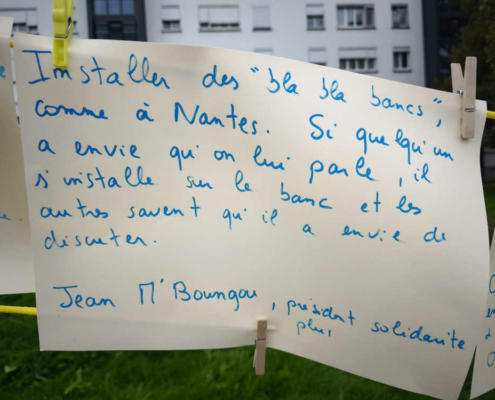 Installer des "bla bla bancs",
comme à Nantes. Si quelqu'un
a envie qu'on lui parle, il
s'installe sur le banc et les
autres savent qu'il a envie de
discuter.
Jean M'Boungou, président solidarité
plus